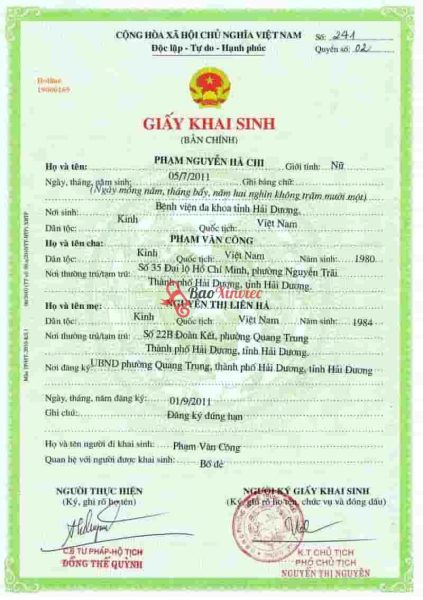 CỘNG HÒA XÃ HỘI CHỦ NGHĨA VIỆT NAM Số: 241
Độc lập - Tự do - Hạnh phúc Quyển số: 02
Hotline
19006165
GIẤY KHAI SINH
(BẢN CHÍNH)
Họ và tên: PHẠM NGUYỄN HÀ CHI Giới tính: Nữ
Ngày, tháng, năm sinh: 05/7/2011 Ghi bằng chữ:
(Ngày mồng năm, tháng bảy, năm hai nghìn không trăm mười một)
Nơi sinh: Bệnh viện đa khoa tỉnh Hải Dương.
Dân tộc: Kinh Quốc tịch: Việt Nam
Họ và tên cha: PHẠM VĂN CÔNG
Dân tộc: Kinh Quốc tịch: Việt Nam Năm sinh: 1980
Nơi thường trú/tạm trú: Số 35 Đại lộ Hồ Chí Minh, phường Nguyễn Trãi
Thành phố Hải Dương, tỉnh Hải Dương.
BaoXinviec
Họ và tên mẹ: NGUYỄN THỊ LIÊN HÀ
Dân tộc: Kinh Quốc tịch: Việt Nam Năm sinh: 1984
Nơi thường trú/tạm trú: Số 22B Đoàn Kết, phường Quang Trung
Thành phố Hải Dương, tỉnh Hải Dương.
Nơi đăng ký: UBND phường Quang Trung, thành phố Hải Dương, tỉnh Hải Dương
Ngày, tháng, năm đăng ký: 01/9/2011
Ghi chú: Đăng ký đúng hạn
Họ và tên người đi khai sinh: Phạm Văn Công
Quan hệ với người được khai sinh: Bố đẻ
NGƯỜI THỰC HIỆN NGƯỜI KÝ GIẤY KHAI SINH
(Ký, ghi rõ họ tên) (Ký, ghi rõ họ tên, chức vụ và đóng dấu)
C.B TƯ PHÁP-HỘ TỊCH K.T CHỦ TỊCH
ĐỒNG THẾ QUỲNH PHÓ CHỦ TỊCH
NGUYỄN THỊ NGUYÊN